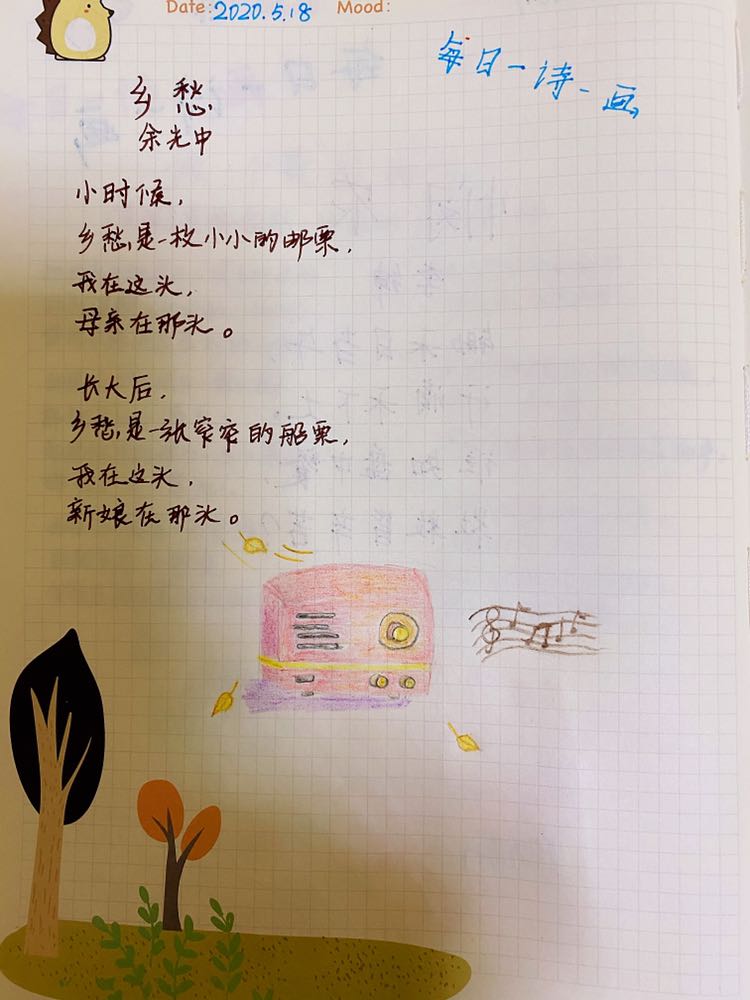 Date: 2020.5.18 Mood:
每日一诗一画
乡愁
余光中
小时候，
乡愁是一枚小小的邮票，
我在这头，
母亲在那头。
长大后，
乡愁是一张窄窄的船票，
我在这头，
新娘在那头。